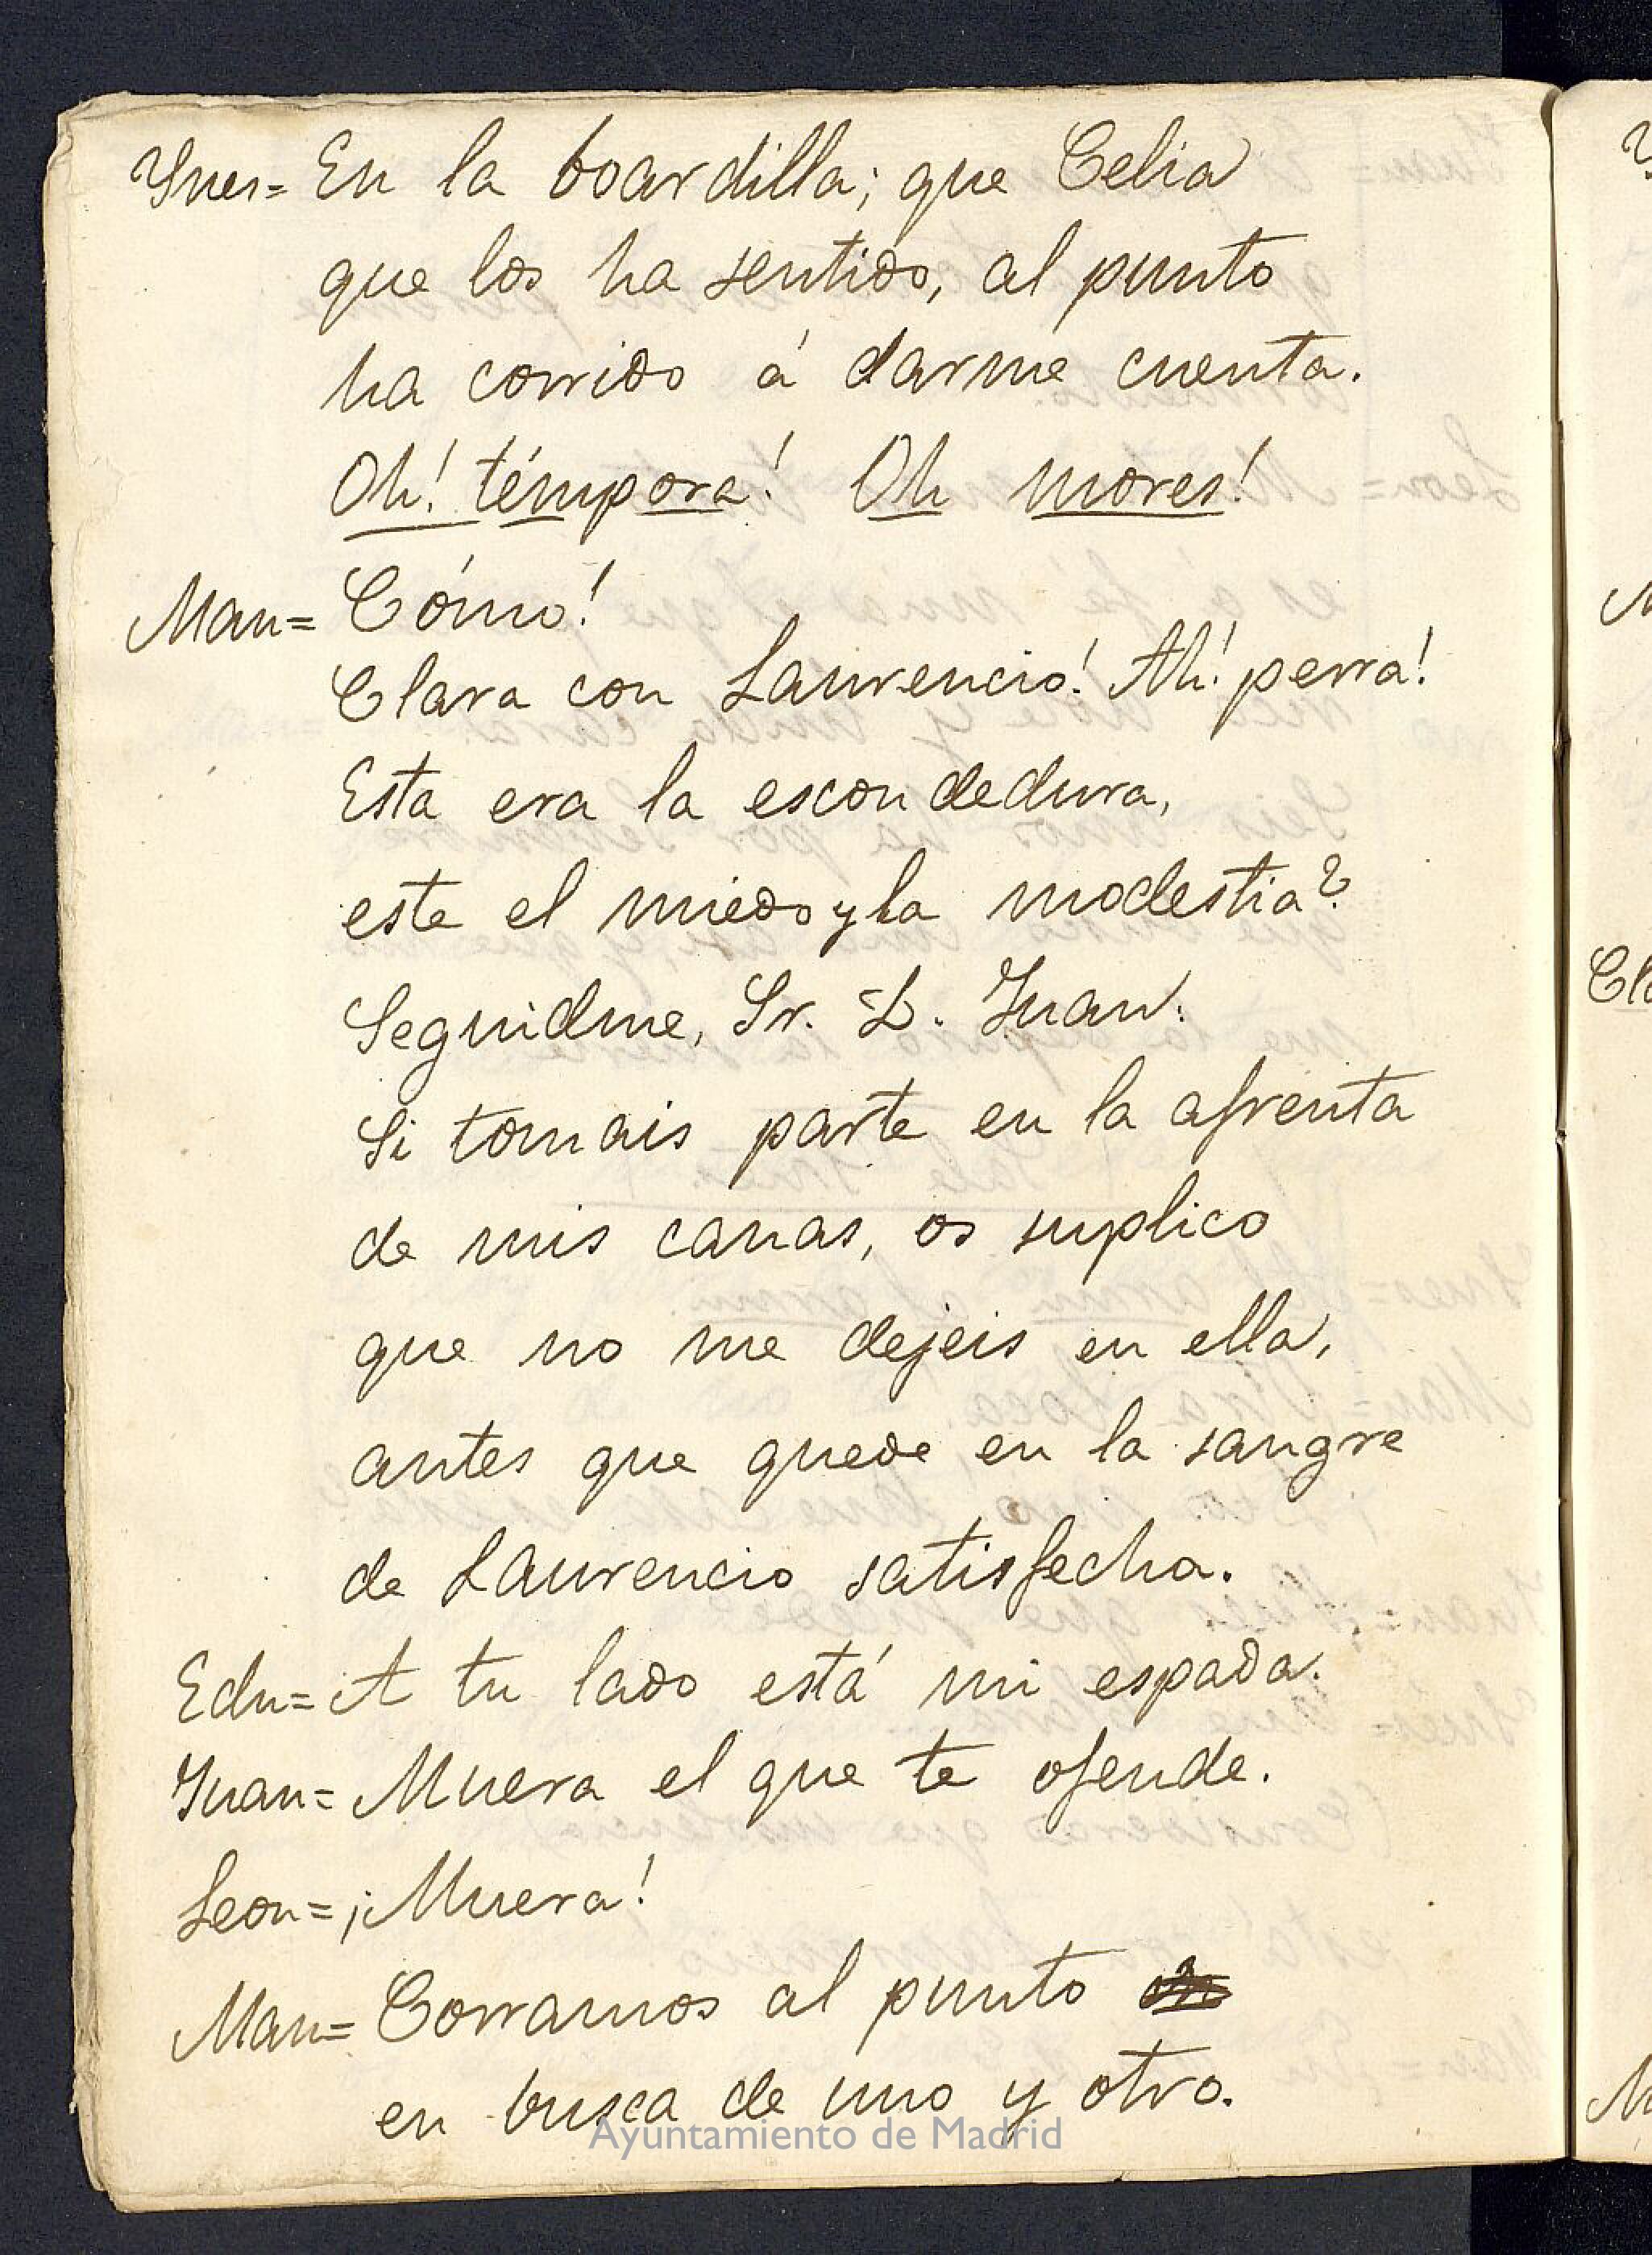 Ynes= En la boardilla; que Celia
que los ha sentido, al punto
ha corrido á darme cuenta.
Oh! témpora! Oh mores!
Man= Cómo!
Clara con Laurencio! Ah! perra!
Esta era la escondedura,
este el miedo y la modestia?
Seguidme, Sr. D. Juan.
Si tomais parte en la afrenta
de mis canas, os suplico
que no me dejeis en ella,
antes que quede en la sangre
de Laurencio satisfecha.
Edu= A tu lado está mi espada.
Juan= Muera el que te ofende.
Leon= ¡Muera!
Man= Corramos al punto
en busca de uno y otro.
Ayuntamiento de Madrid
Cla